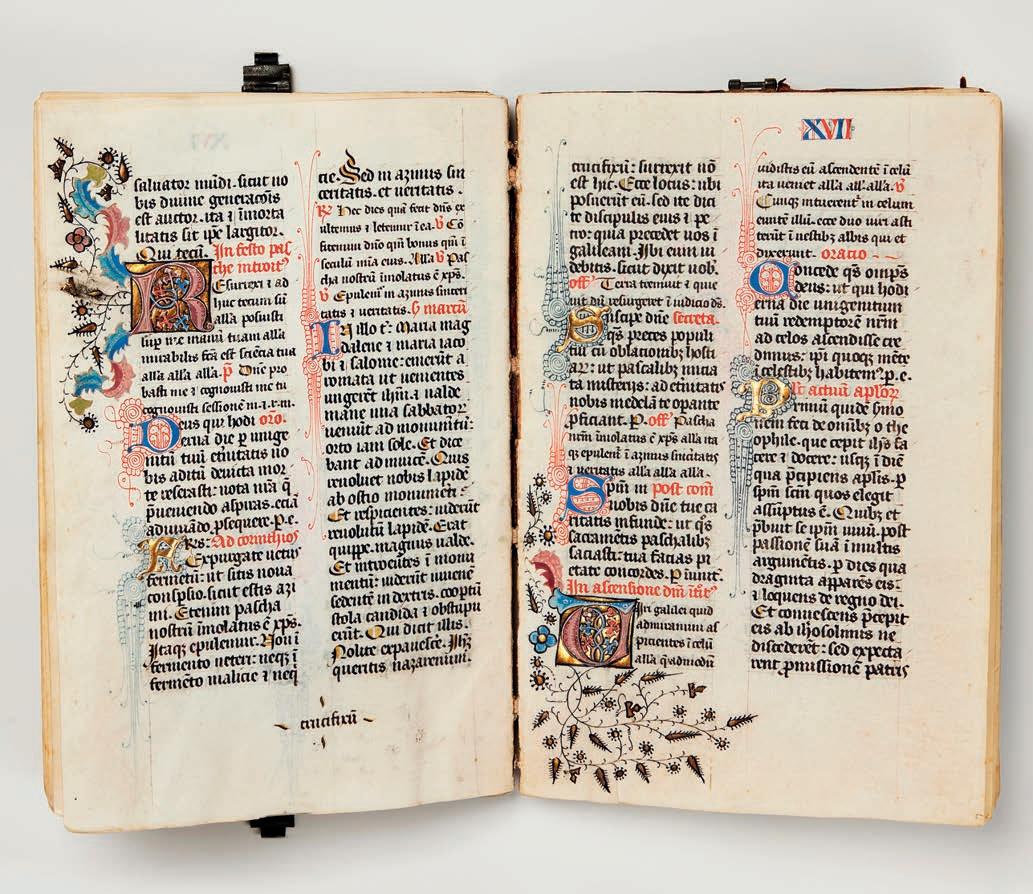 saluator mūdi. sicut no
bis diuine generacōis
est auctor. ita ⁊ īmorta
litatis sit ip̄e largitor.
Qui tecū. In festo pas
che introit⁹
Resurexi ⁊ ad
huc tecum sū
alla posuisti
sup me manū tuam alla
mirabilis fc̄a est sciētia tua
alla alla alla. p̄ Dn̄e pro
basti me ⁊ cognouisti me tu
cognouisti sessionē
Deus qui hodi oro.
erna die p vnige
nitū tuū etnitatis no
bis aditū deuicta mor
te reserasti: uota nr̄a q̄
p̄ueniendo aspiras. eciā
adiuuādo psequere. p. e.
Ad corinthios
Expurgate uetus
fermētū: ut sitis noua
conspsio. sicut estis azi
mi. Etenim pascha
nostrū īmolatus ē xp̄s.
Itaqȝ epulemur. Non ī
fermento ueteri: neqȝ ī
fermēto malicie ⁊ neq
cie. Sed in azimis sin
ceritatis. et ueritatis.
Hec dies quā fecit dn̄s ex
ultemus ⁊ letemur ī ea. v̄ Cō
fitemini dn̄o qm̄ bonus qm̄ ī
seculū mia eius. Alla v̄ Pas
cha nostrū īmolatus ē xp̄s.
v̄ Epulem̄ in azimis sinceri
tatis ⁊ ueritatis. marcū
In illo t̄: Maria mag
dalene ⁊ maria iaco
bi ⁊ salome: emerūt a
romata ut uenientes
ungerēt ih̄m. ⁊ ualde
mane una sabbatoꝝ
ueniūt ad monumētū:
orto iam sole. Et dice
bant ad inuicē. Quis
reuoluet nobis lapidē
ab ostio monumēti:
Et respicientes: uiderūt
reuolutū lapidē. Erat
quippe. magnus ualde.
Et introeūtes ī monu
mentū: uiderūt iuuenē
sedentē in dextris. coopt̄ū
stola candida ⁊ obstupu
erūt. Qui dicit illis.
Nolite expauescē. Ih̄m
queritis nazarenum.
crucifixū
XVII
crucifixū: surrexit nō
est hic. Ecce locus: ubi
posuerūt eū. sed ite dici
te discipulis eius ⁊ pe
tro: quia precedet uos ī
galileam. Ibi eum ui
debitis. sicut dixit uob.
off Terra tremuit ⁊ quie
uit dū resurgeret ī iudicio ds.
Suscipe dn̄e secreta.
qs p̄ces populi
tui cū oblationibȝ hosti
aꝝ: ut paschalibȝ inicia
ta misteriis: ad etnitatis
nobis medelā te opante
pficiant. P. off Pascha
nr̄m īmolatus ē xp̄s alla ita
qȝ epulem̄ ī azimis sīceritatis
⁊ ueritatis alla alla alla.
Spm̄ in post com̄
nobis dn̄e tue ca
ritatis infunde: ut qs
sacramētis paschalibȝ
saciasti: tua facias pi
etate concordes. P
In ascensione dn̄i
Uiri galilei quid
admiramini as
picientes ī celū
alla q̄admodū
uidistis eū ascendentē ī celū
ita ueniet alla all alla. v̄
Cunqȝ intuerent̄ in celum
euntē illū. ecce duo uiri asti
terūt ī uestibȝ albis qui et
dixerunt. oratio
Concede qs omp̄s
deus: ut qui hodi
erna die unigenitum
tuū redemptorē nr̄m
ad celos ascendisse cre
dimus: ip̄i quoqȝ mēte
ī celestibȝ habitem⁹. p. e.
actuū aplor
Primū quidē smo
nem feci de om̄ibȝ o the
ophile. que cepit ih̄s fa
cere ⁊ docere: usqȝ ī diē
qua p̄cipiens aplis. p
spm̄ scm̄ quos elegit
assūptus ē. Quibȝ et
p̄buit se ip̄m uiuū. post
passionē suā ī multis
argumētis. p dies qua
draginta apparēs eis.
⁊ loquens de regno dei.
Et conuescens p̄cepit
eis ab ih̄rosolimis ne
discederēt: sed expecta
rent pmissionē patris